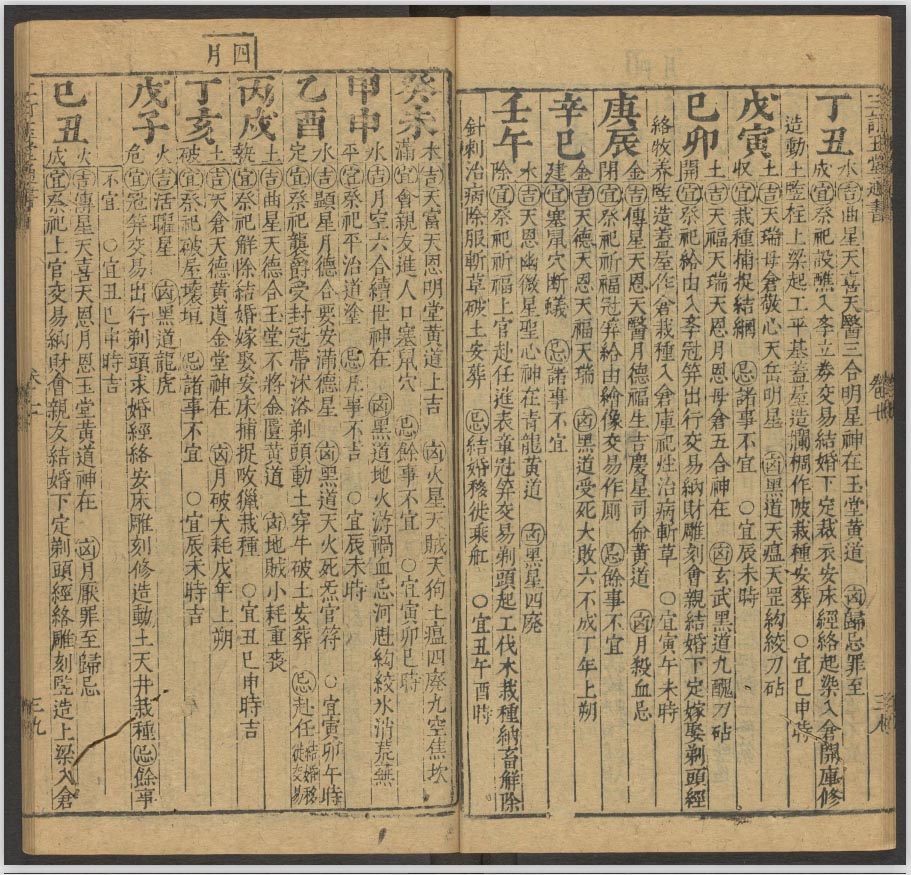 丁丑
水吉曲星天喜天醫三合明星神在玉堂黃道 凶歸忌罪至
成宜祭祀設醮入學立券交易結婚下定裁衣安床經絡起染入倉開庫修
造動土竪柱上梁起工平基蓋屋造攔棩作陂栽種安葬 ○宜巳申時
戊寅
土吉天瑞母倉敬心天岳明星 凶黑道天瘟天罡絞刀砧
收宜栽種捕捉結網 忌諸事不宜 ○宜辰未時
己卯
土吉天福天瑞天恩月恩母倉五合神在 凶玄武黑道九醜刀砧
開宜祭祀給由入學冠笄出行交易納財雕刻會親結婚下定嫁娶剃頭經
絡牧養竪造蓋屋作倉栽種入倉庫祀灶治病斬草 ○宜寅午未時
庚辰
金吉傳星天恩天醫月德福生吉慶星司命黃道 凶月殺血忌
閉宜祭祀祈福冠笄給由繪像交易作廁 忌餘事不宜
辛巳
金吉天德天恩天福天瑞 凶黑道受死大敗六不成丁年上朔
建宜塞鼠穴斷蟻 忌諸事不宜
壬午
水吉天恩幽微星聖心神在青龍黃道 凶黑星四廢
除宜祭祀祈福上官赴任進表章冠笄交易剃頭起工伐木栽種納畜解除
針刺治病除服斬草破土安葬 忌結婚移徙乘舡 ○宜丑午酉時
四月
癸未
木吉天富天恩明堂黃道上吉 凶火星天賊天狗土瘟四廢九空焦坎
滿宜會親友進人口塞鼠穴 忌餘事不宜 ○宜寅卯巳時
甲申
水吉月空六合續世神在 凶黑道地火游禍血忌河魁絞氷消荒蕪
平宜祭祀平治道塗 忌凡事不吉 ○宜辰未時
乙酉
水吉顯星月德合要安滿德星 凶黑道天火死炁官符 ○宜寅卯午時
定宜祭祀襲爵受封冠帶沐浴剃頭動土穿牛破土安葬 忌赴任結婚移徙交易
丙戌
土吉曲星天德合玉堂不將金匱黃道 凶地賊小耗重喪
執宜祭祀解除結婚嫁娶安床捕捉畋獵栽種 ○宜丑巳申時吉
丁亥
土吉天倉天德黃道金堂神在 凶月破大耗戊年上朔
破宜祭祀破屋壞垣 忌諸事不宜 ○宜辰未時吉
戊子
火吉活曜星 凶黑道龍虎
危宜冠笄交易出行剃頭求婚經絡安床雕刻修造動土天井栽種忌餘事
不宜 ○宜丑巳申時吉
己丑
火吉傳星天喜天恩月恩玉堂黃道神在 凶月厭罪至歸忌
成宜祭祀上官交易納財會親友結婚下定剃頭經絡雕刻竪造上梁入倉